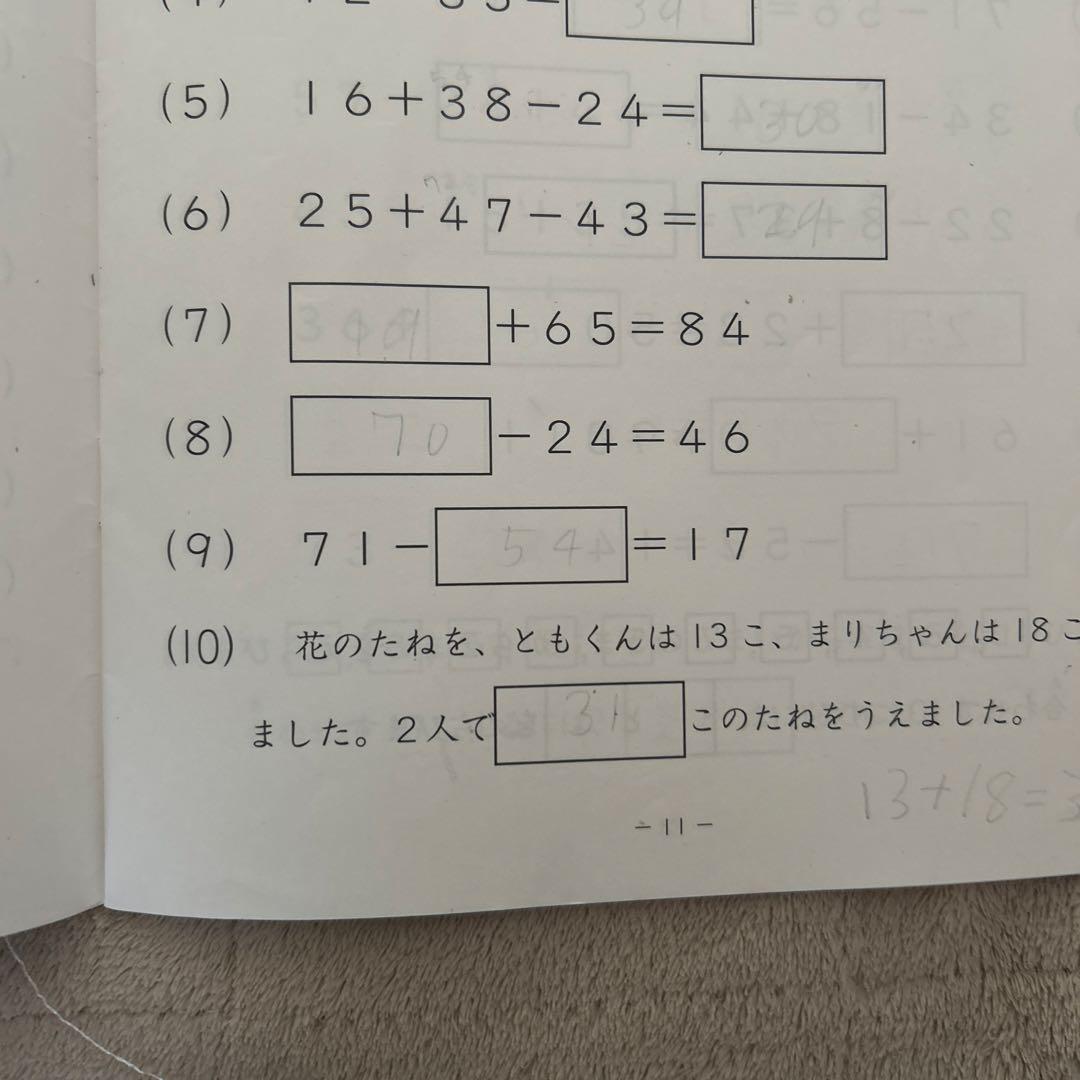 (5) 16+38-24=30
(6) 25+47-43=
(7) +65=84
(8) 70-24=46
(9) 71-54=17
(10) 花のたねを、ともくんは13こ、まりちゃんは18こ
ました。2人で31このたねをうえました。
13+18=3
-11-